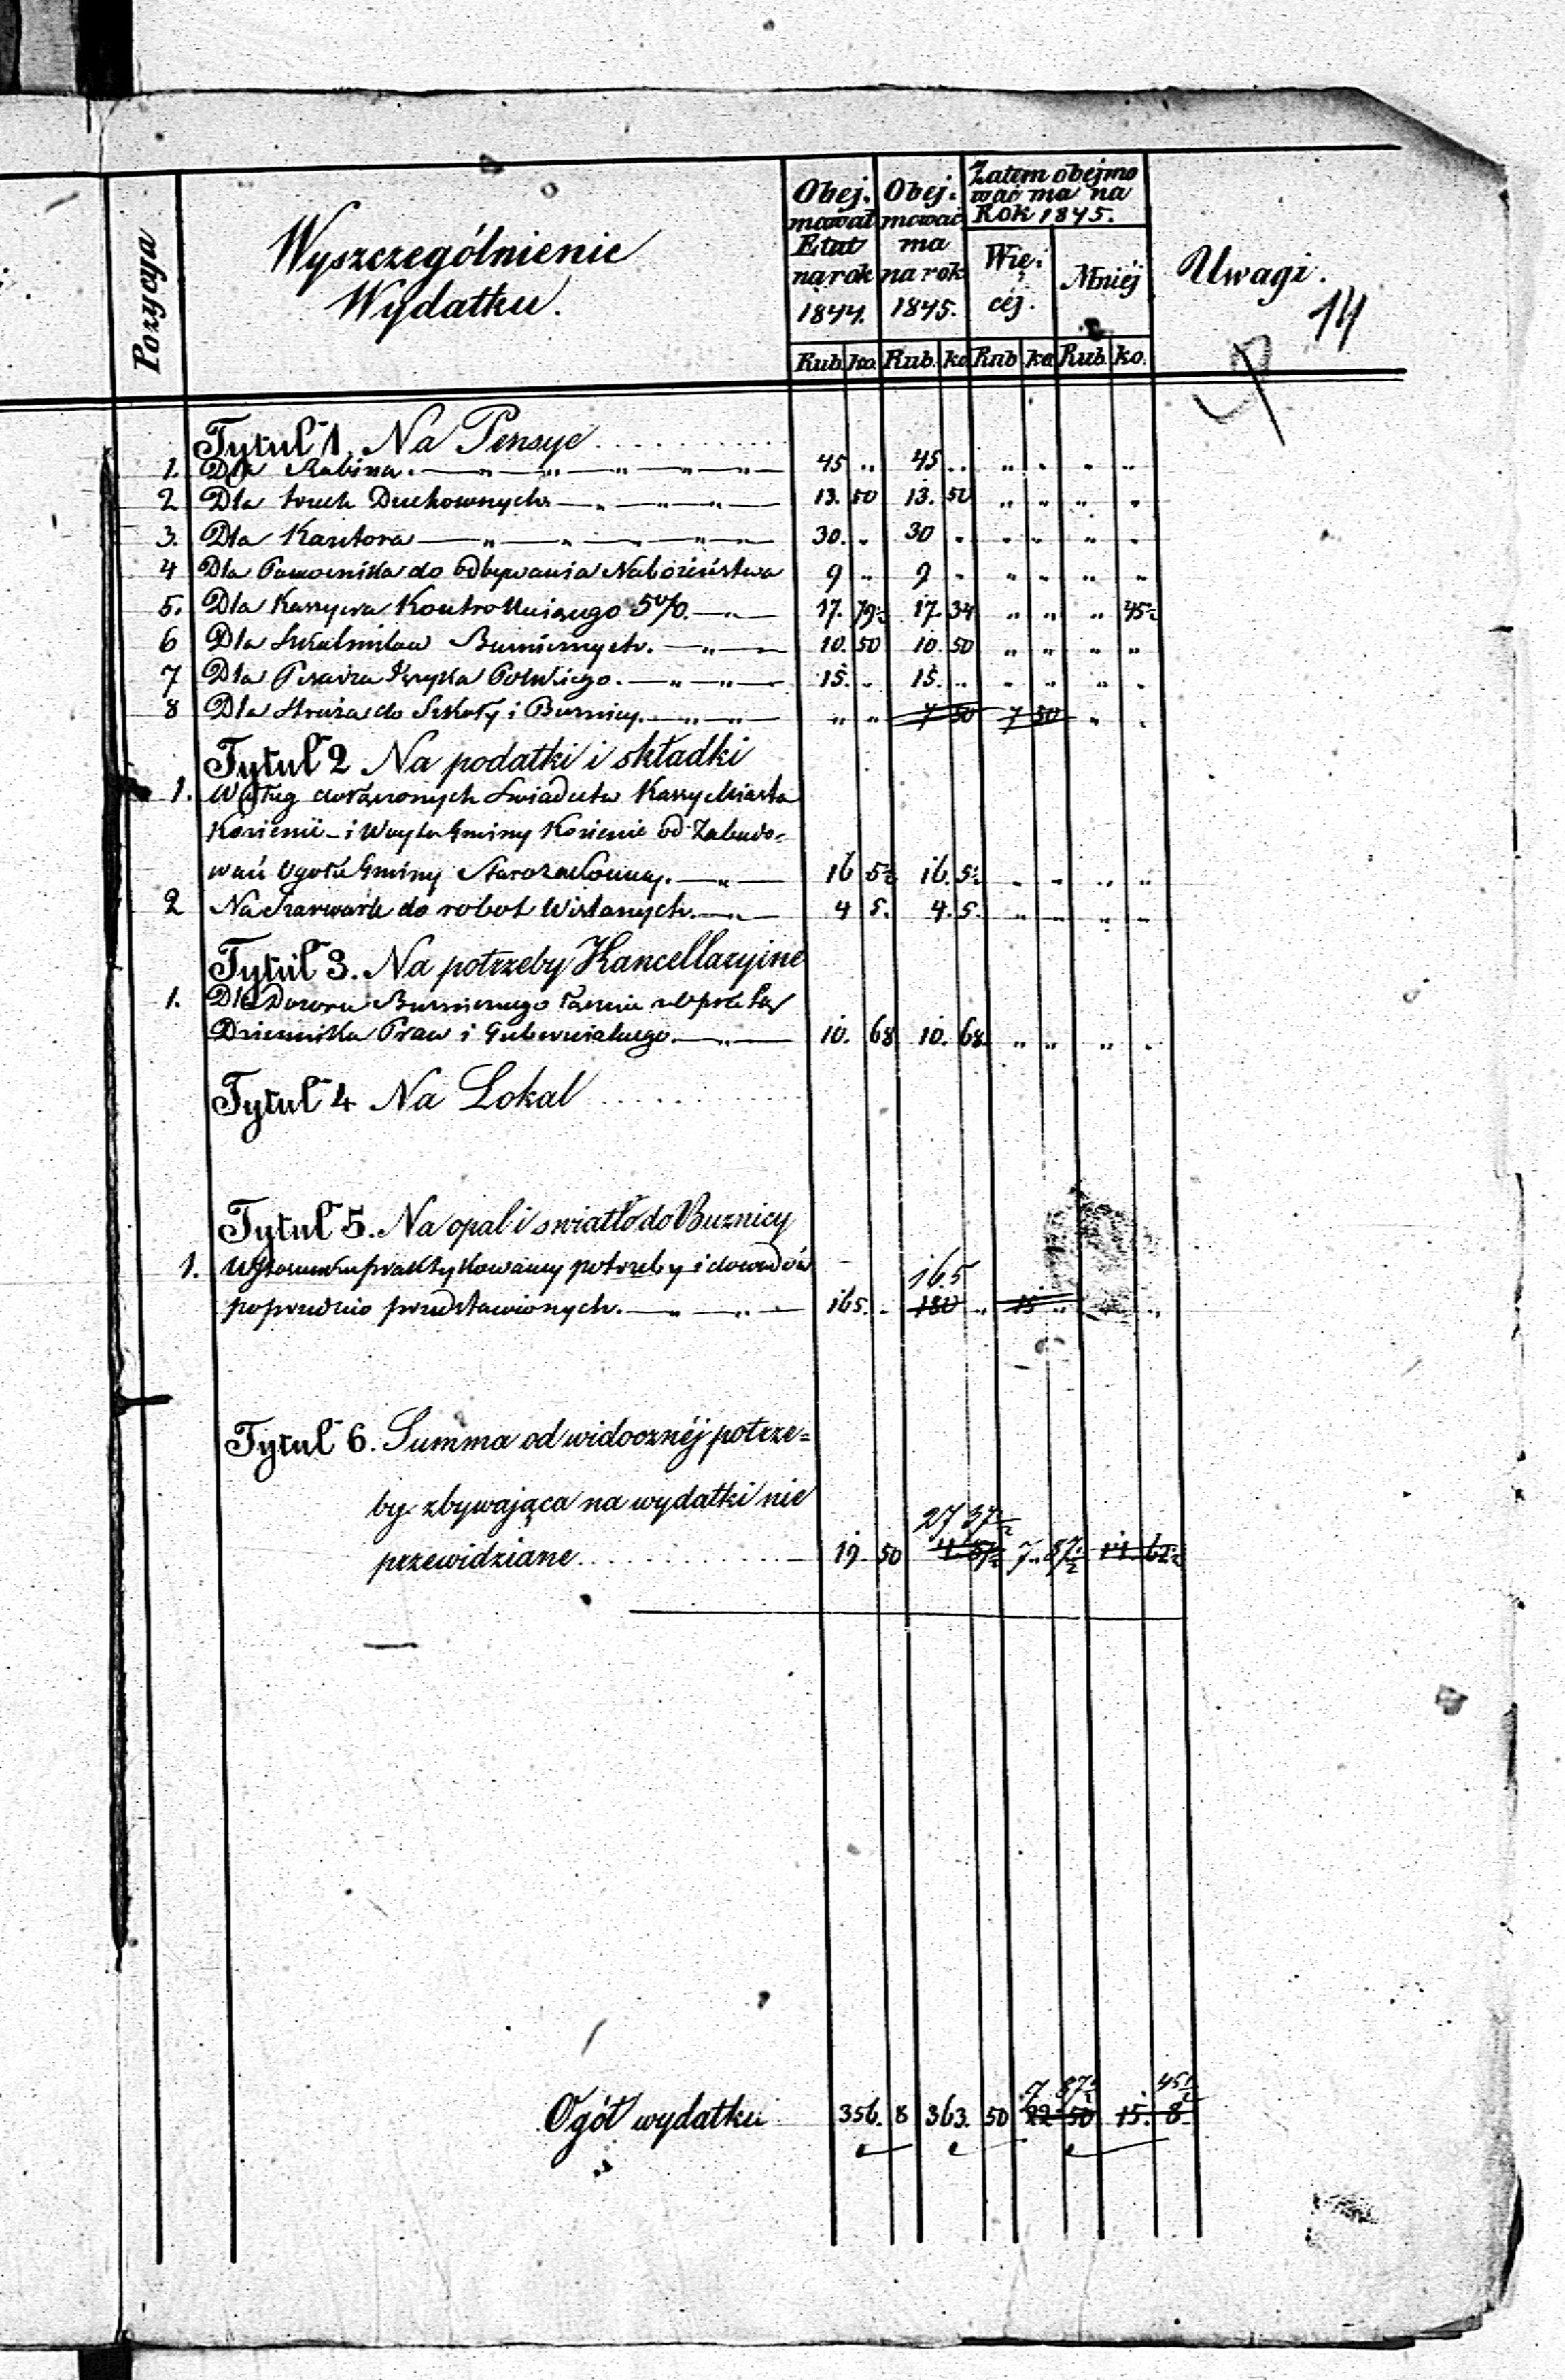 Pozycya
Wyszczególnienie
Wydatku.
Obej: mował Etat na rok 1844.
Obej: mować ma na rok 1845.
Zatem obejmo wać ma na Rok 1845.
Wię: céj.
Mniéj
Uwagi.
14
Rub. ko. Rub. ko Rub ko Rub. ko.
Tytuł 1. Na Pensye
1. Dla Rabina. 45 „ 45 „ „ „ „ „
2 Dla trzech Duchownych 13. 50 13. 50 „ „ „ „
3. Dla Kantora 30. „ 30 „ „ „ „ „
4 Dla Pomocnika do odbywania Nabożeństwa 9 „ 9 „ „ „ „ „
5. Dla Kassyera Kontrollującego 5%. 17. 79½ 17. 34 „ „ „ 45½
6 Dla Szkolników Bużniczych. 10. 50 10. 50 „ „ „ „
7 Dla Pisarza Języka Polskiego. 15. „ 15. „ „ „ „ „
8 Dla Stróża do Szkoły i Bużnicy. „ „ 7 50 7 50 „ „
Tytuł 2 Na podatki i składki
1. Według dołączonych Świadectw Kassy Miasta
Kozienic i Wóyta Gminy Kozienic od Zabudo-
wań Ogółu Gminy Starozakonney. 16 5½ 16. 5½ „ „ „ „
2 Na Szarwark do robot Wiślanych. 4 5. 4. 5. „ „ „ „
Tytuł 3. Na potrzeby Kancellaryine
1. Dla Dozoru Bużniczego łącznie z opłatą
Dziennika Praw i Gubernialnego. 10. 68 10. 68 „ „ „ „
Tytuł 4 Na Lokal
Tytuł 5. Na opał i swiatło do Bużnicy
16.5
1. W stosunku praktykowaney potrzeby i dowodów
poprzednio przedstawionych. 165. „ 180 „ 15 „ „ „
Tytuł 6. Summa od widocznéj potrze=
by zbywająca na wydatki nie
27 37½
przewidziane 19 50 4 87½ 7. 87½ 14. 62½
7 87½ 45½
Ogół wydatku 356. 8 363. 50 22 50 15. 8